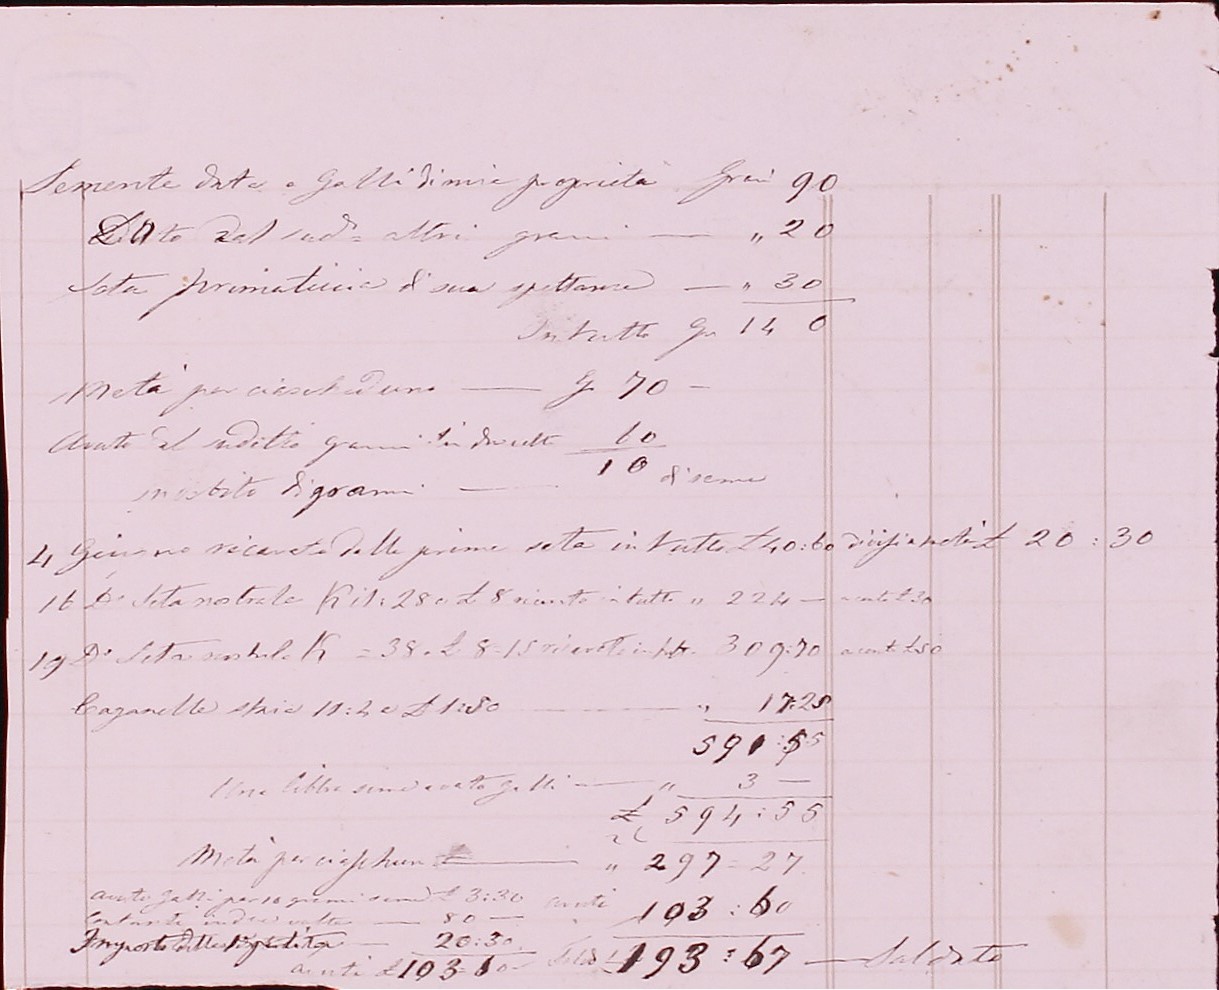 Semente data a Galli di mia proprietà Grai 90
Dato dal sud.º altri grammi — „ 20
Seta primaticcia di sua spettanza — „ 30
In tutto Gr 140
Metà per ciascheduno — G 70 —
Avuto il suditto grammi in due volte 60
in debito di grammi — 10 di seme
4 Giugno ricavato dalla prima seta in tutto £ 40:60 divisi a metà £ 20:30
16 Dº Seta nostrale Kil: 28 a £ 8 ricavato in tutto „ 224 — avuto £ 30
19 Dº Seta nostrale K = 38 a £ 8=15 ricavato in tutto 309:70 avuto £ 50
Caganelle staia 11:2 a £ 1:50 — „ 17:25
591:55
Una libbra seme avuto Galli — „ 3 —
£ 594:55
Metà per ciaschuno — „ 297=27
avuto Galli per 10 grammi seme £ 3:30 avuti 103:60
Contanti in due volte — 80 —
Importo della 1ª partita — 20:30
avuti £ 103=60 Saldo £ 193:67 — Saldato